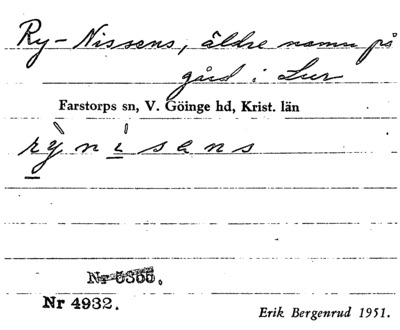 Ry-Nissens, äldre namn på
gård i Lur
Farstorps sn, V. Göinge hd, Krist. län
rỳnìsens
Nr 5355.
Nr 4932.
Erik Bergenrud 1951.